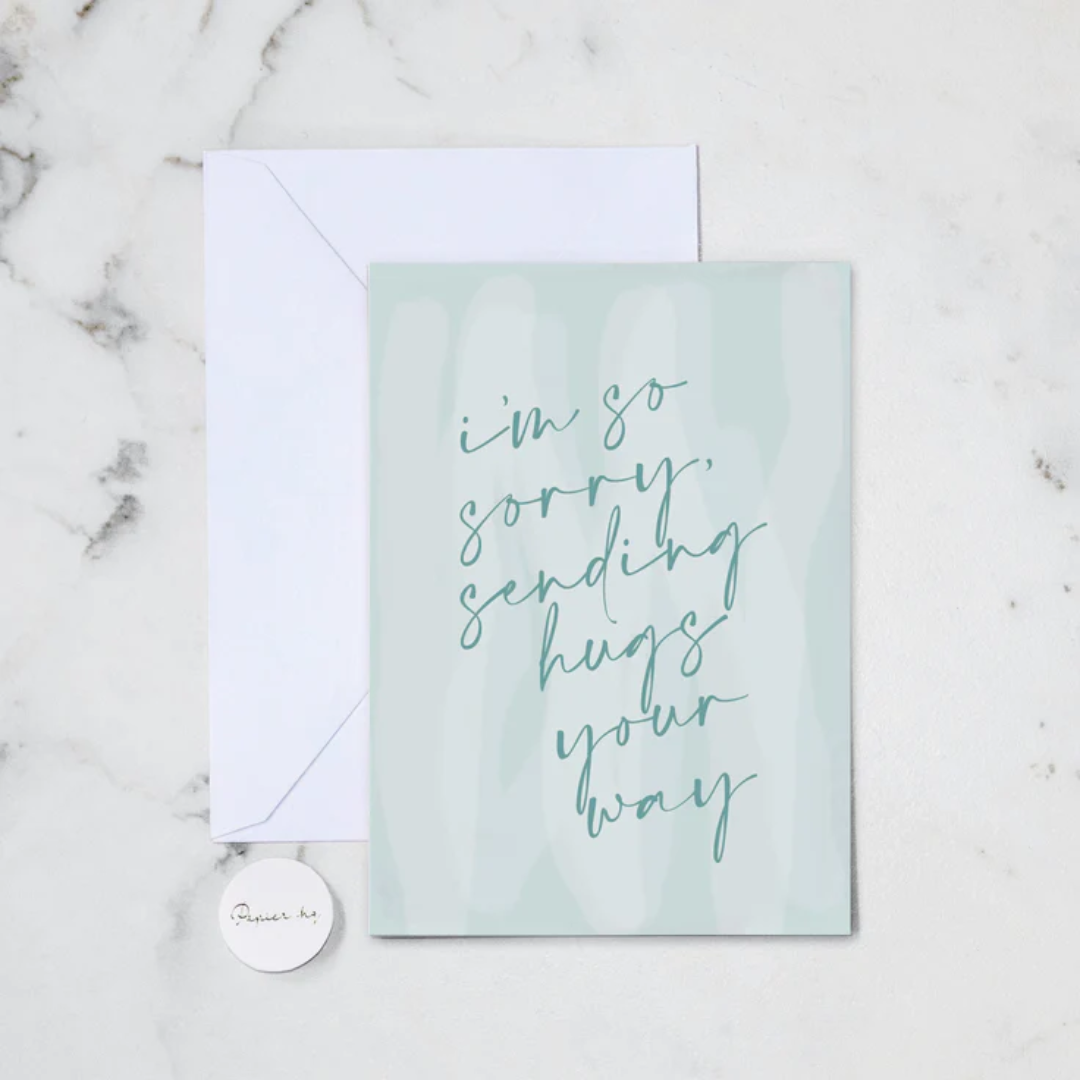 i'm so
sorry,
sending
hugs
your
way
Papier hq